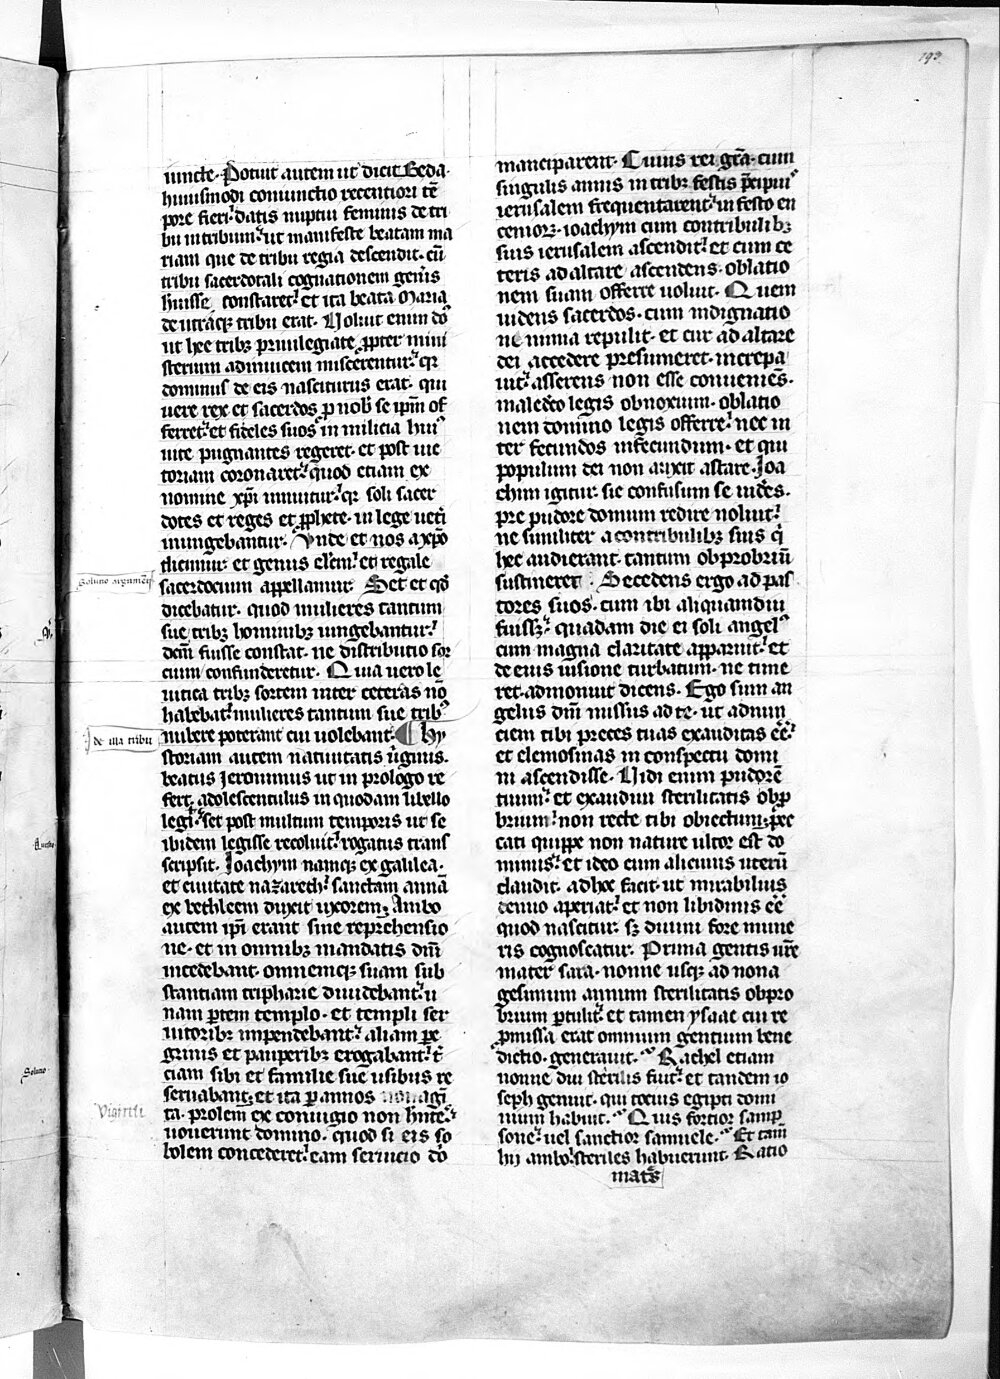 193
iuncte. Potuit autem ut dicit Beda.
huiusmodi coniunctio recentiori tē
pore fieri datis nuptui feminis de tri
bu in tribum ut manifeste beatam ma
riam que de tribu regia descendit. cū
tribu sacerdotali cognationem gen̄is
h̄uisse constaret et ita beata Maria
de utraq; tribu erat. Uoluit enim dn̄s
ut hee trib; priuilegiate ꝓpter mini
sterium adinuicem miscerentur. qr
dominus de eis nasciturus erat. qui
uere rex et sacerdos ꝓ nob̄ se ip̄m of
ferret et fideles suos in milicia hui9
uite pugnantes regeret. et post uic
toriam coronaret. quod etiam ex
nomine xp̄i innuitur. qr soli sacer
dotes et reges et ꝓphete in lege uet̄i
inungebantur. Vnde et nos a xp̄o
dicimur et genus elc̄m et regale
Solutio argumēti
sacerdocium appellamur. Set et qd̄
dicebatur. quod mulieres tantum
sue trib; hominib; iungebantur.
dc̄m fuisse constat. ne distributio sor
cium confunderetur. Quia uero le
uitica trib; sortem inter ceteras nō
habebat. mulieres tantum sue trib9
de illa tribu
nubere poterant cui uolebant. Hy
storiam autem natiuitatis uirginis.
beatus Jeronimus ut in prologo re
fert. adolescentulus in quodam libello
legit. set post multum temporis ut se
ibidem legisse recoluit. rogatus trans
scripsit. Joachym namq; ex galilea.
et ciuitate nazareth. sanctam annā
ex bethleem duxit uxorem. Ambo
autem ip̄i erant sine reprehensio
ne. et in omnib; mandatis dn̄i
incedebant. omnemq; suam sub
stantiam tripharie diuidebant. u
nam ꝑtem templo. et templi ser
uitorib; impendebant. aliam ꝑe
grinis et pauperib; erogabant. t̄
ciam sibi et familie sue usibus re
seruabant. et ita ꝑ annos
Viginti
ta. prolem ex coniugio non h̄ntes
uouerunt domino. quod si eis so
bolem concederet. eam seruicio dō
manciparent. Cuius rei gr̄a. cum
singulis annis in trib; festis p̄cipui9
ierusalem frequentarent. in festo en
ceniorꝝ. ioachym cum contribulib;
suis ierusalem ascendit. et cum ce
teris ad altare ascendens. oblatio
nem suam offerre uoluit. Quem
uidens sacerdos. cum indignatio
ne nimia repulit. et cur ad altare
dei accedere presumeret. increpa
uit. asserens non esse conueniēs.
maledc̄o legis obnoxium. oblatio
nem domino legis offerre. nec in
ter fecundos infecundum. et qui
populum dei non auxit astare. Joa
chim igitur. sic confusum se uidēs.
pre pudore domum redire noluit.
ne similiter a contribulib; suis q̄
hec audierant. tantum obprobriū
sustineret. Secedens ergo ad pas
tores suos. cum ibi aliquamdiu
fuiss;. quadam die ei soli angel9
cum magna claritate apparuit. et
de eius uisione turbatum. ne time
ret. admonuit dicens. Ego sum an
gelus dn̄i missus ad te. ut adnun
ciem tibi preces tuas exauditas ēē.
et elemosinas in conspectu domi
ni ascendisse. Uidi enim pudorē
tuum. et exaudiui sterilitatis obꝓ
brium. non recte tibi obiectum. pec
cati quippe non nature ultor est do
minus. et ideo cum alicuius uterū
claudit. ad hoc facit. ut mirabilius
denuo aperiat. et non libidinis ēē
quod nascitur. s; diuini fore mune
ris cognoscatur. Prima gentis ur̄e
mater sara. nonne usq; ad nona
gesimum annum sterilitatis obpro
brium ꝑtulit. et tamen ysaac cui re
ꝓmissa erat omnium gentium bene
dictio. generauit. Rachel etiam
nonne diu sterilis fuit. et tandem io
seph genuit. qui tocius egipti domi
nium habuit. Quis fortior samp
sone. uel sanctior samuele. Et tam̄
hii ambo steriles habuerunt. Ratio
matr̄s